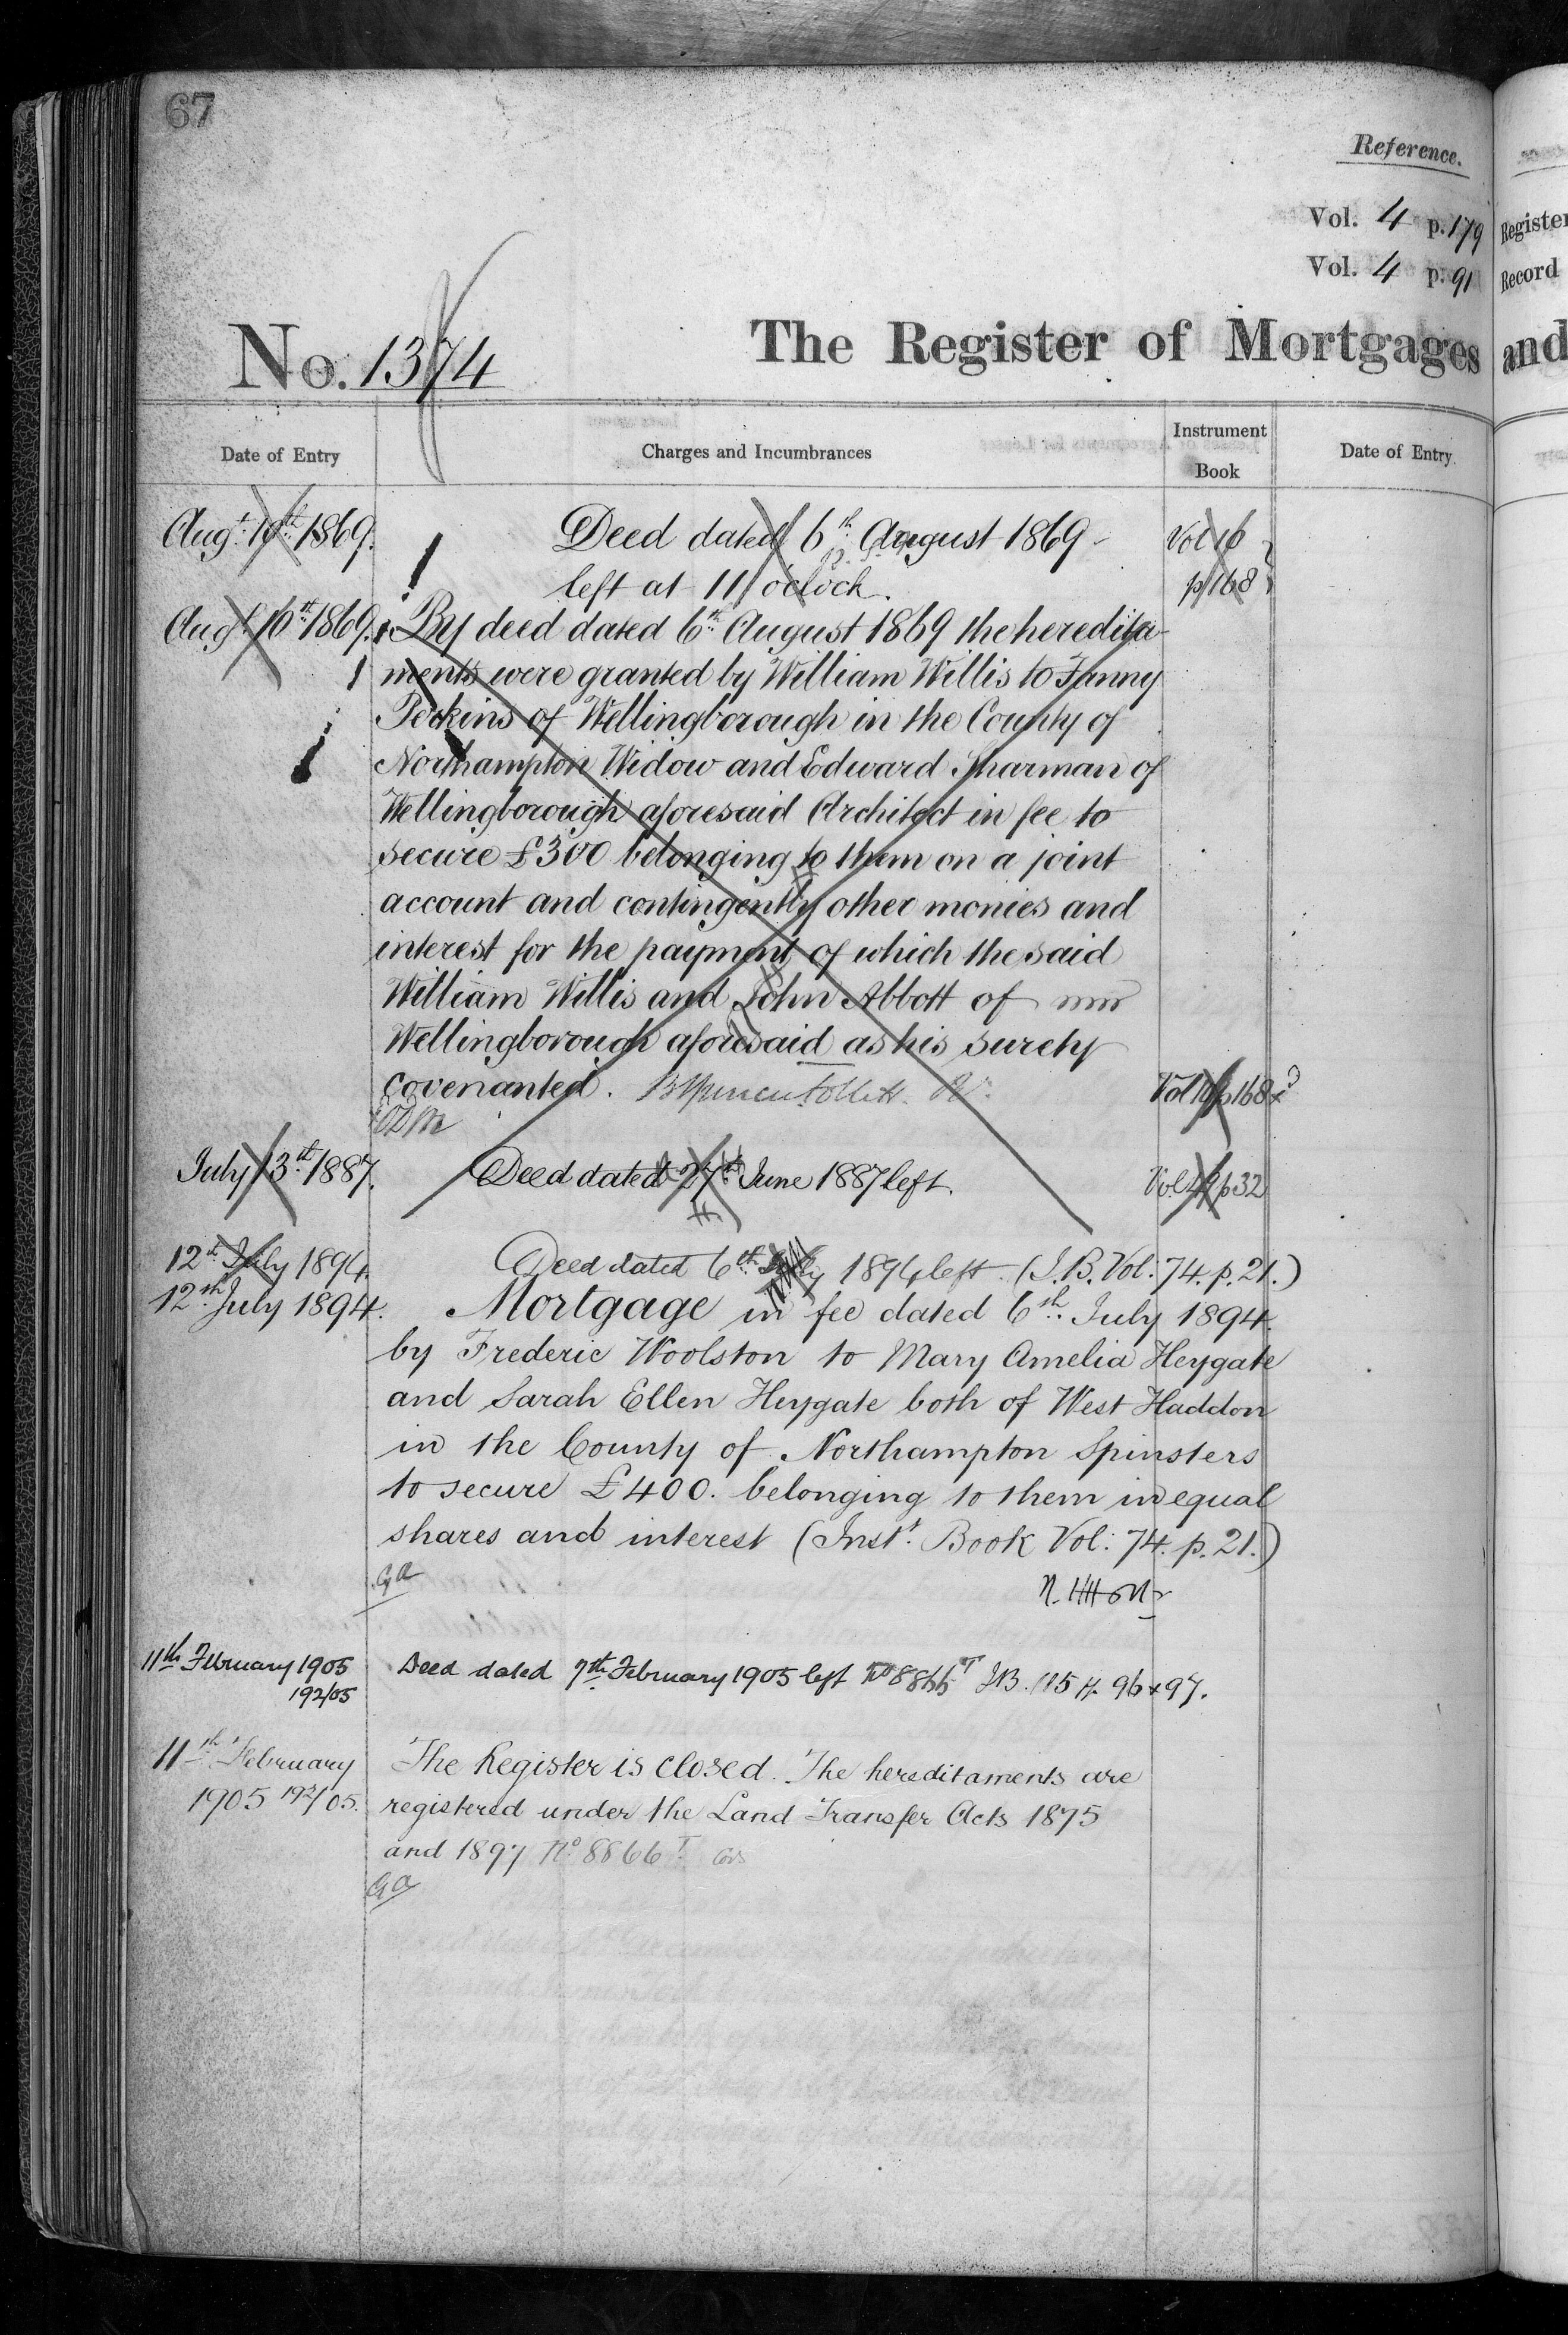 67
Reference.
Vol. 4 p. 179
Vol. 4 p. 91
Register
Record
No. 1374
The Register of Mortgages and
Date of Entry
Charges and Incumbrances
Instrument Book
Date of Entry
Augt. 10th 1869. Deed dated 6th August 1869 Vol 10
left at 11 o'clock. p 168
Augt. 10th 1869. By deed dated 6th August 1869 the heredita-
ments were granted by William Willis to Fanny
Perkins of Wellingborough in the County of
Northampton Widow and Edward Sharman of
Wellingborough aforesaid Architect in fee to
secure £300 belonging to them on a joint
account and contingently other monies and
interest for the payment of which the said
William Willis and John Abbott of
Wellingborough aforesaid as his surety
covenanted. Vol 10 p 168
July 13th 1887. Deed dated 27th June 1887 left. Vol 49 p 32
12th July 1894. Deed dated 6th July 1894 left. (I.B. Vol: 74. p. 21.)
12th July 1894. Mortgage in fee dated 6th July 1894.
by Frederic Woolston to Mary Amelia Heygate
and Sarah Ellen Heygate both of West Haddon
in the County of Northampton Spinsters
to secure £400. belonging to them in equal
shares and interest (Inst. Book Vol: 74. p. 21.)
GA
11th February 1905 Deed dated 7th February 1905 left No 8866 T I.B. 115 p. 96 & 97.
192/05
11th February The Register is closed. The hereditaments are
1905 192/05. registered under the Land Transfer Acts 1875
and 1897 No 8866 T
GA